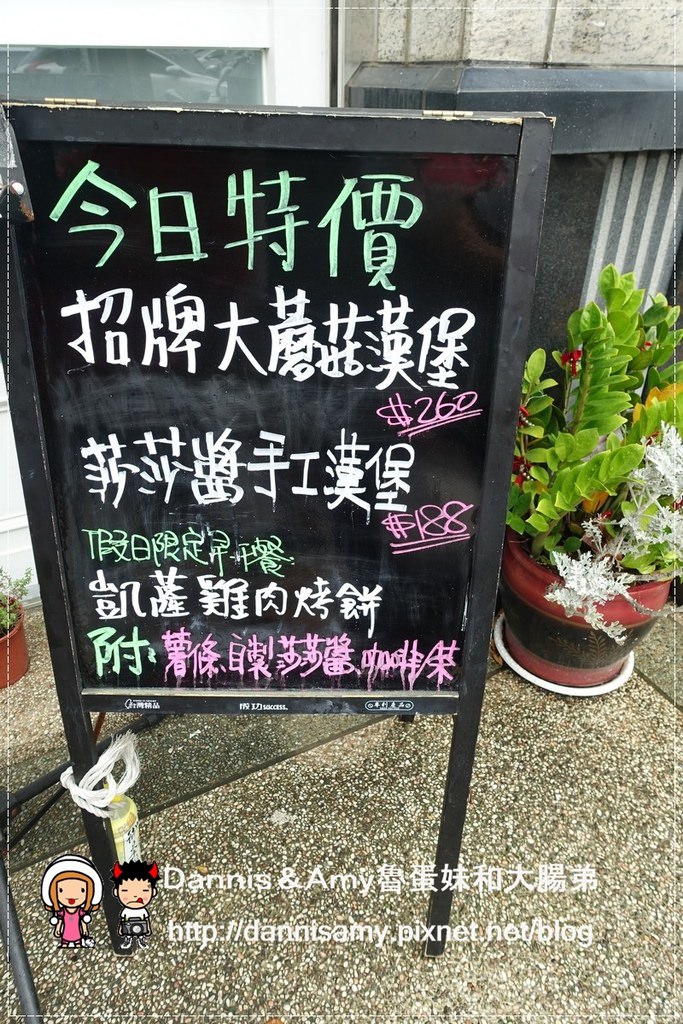 今日特價
招牌大蘑菇漢堡
$260
莎莎醬手工漢堡
$188
假日限定早午餐
凱薩雞肉烤餅
附:薯條、自製莎莎醬、咖啡/茶
台灣精品
成功 SUCCESS.
專利產品
Dannis & Amy魯蛋妹和大腸弟
http://dannisamy.pixnet.net/blog